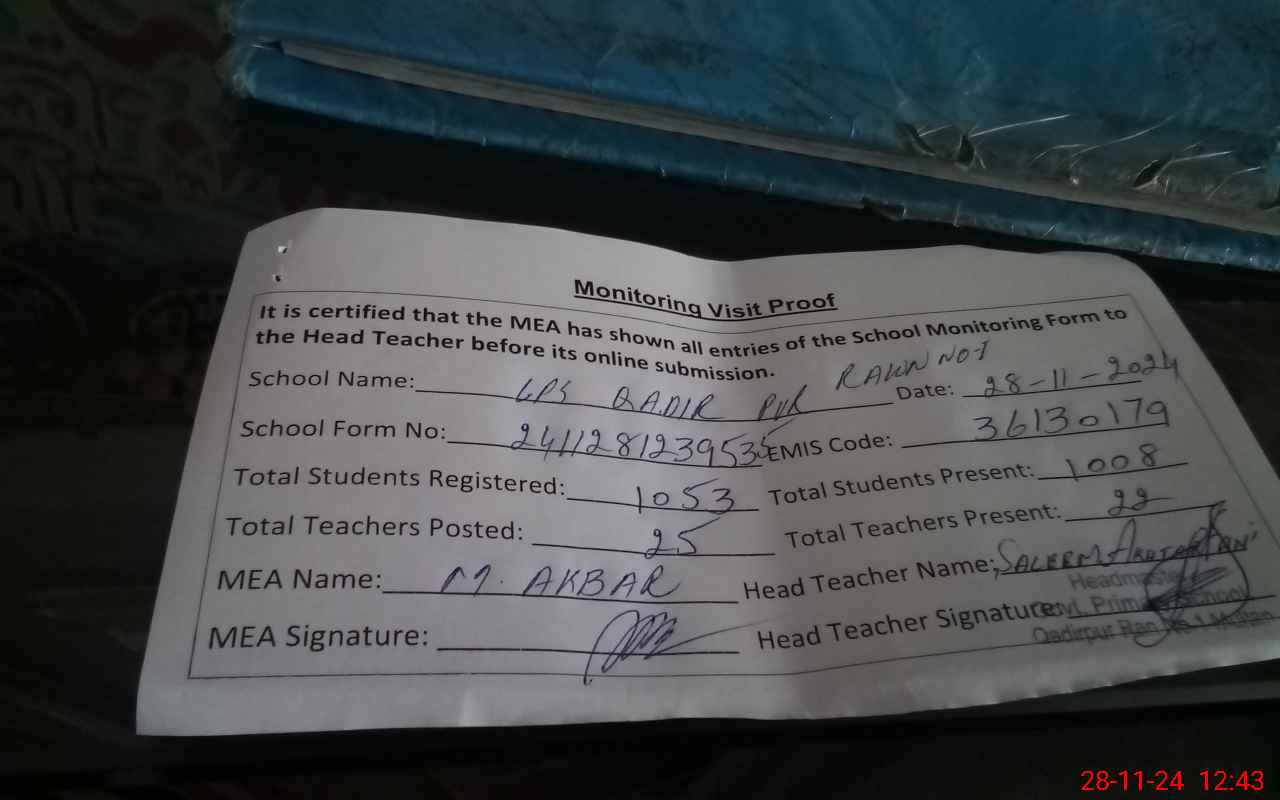 Monitoring Visit Proof
It is certified that the MEA has shown all entries of the School Monitoring Form to
the Head Teacher before its online submission.
School Name: GPS QADIR PUR RAWN NO-1 Date: 28-11-2024
School Form No: 2411281239535 EMIS Code: 36130179
Total Students Registered: 1053 Total Students Present: 1008
Total Teachers Posted: 25 Total Teachers Present: 22
MEA Name: M. AKBAR Head Teacher Name: SALEEM
Headmaster
MEA Signature: Head Teacher Signature:
Govt. Primary School
Qadirpur Ran No.1 Multan
28-11-24 12:43